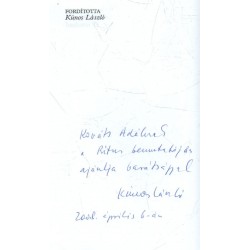 FORDÍTOTTA
Kúnos László
Kováts Adélnak
a Rítus bemutatóján
ajánlja barátsággal
Kúnos László
2008. április 6-án